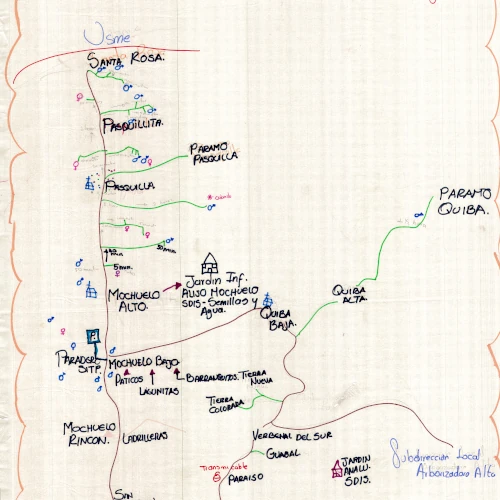 Usme
SANTA ROSA.
PASQUILLITA.
PARAMO
PASQUILLA
PASQUILLA.
PARAMO
QUIBA.
5 min.
Jardin Inf.
ALIJO MOCHUELO
SDIS - Semillas y
Agua.
MOCHUELO
ALTO.
QUIBA
ALTA.
QUIBA
BAJA.
P
PARADERO
SITP.
MOCHUELO BAJO
PATICOS
LAGUNITAS
BARRANQUITOS.
TIERRA
NUEVA
TIERRA
COLORADA
MOCHUELO
RINCON.
LADRILLERAS
VERBENAL DEL SUR
GUABAL
Transmicable
PARAISO
JARDIN
ANALU.
SDIS.
Subdirección Local
Arborizadora Alta
SIN